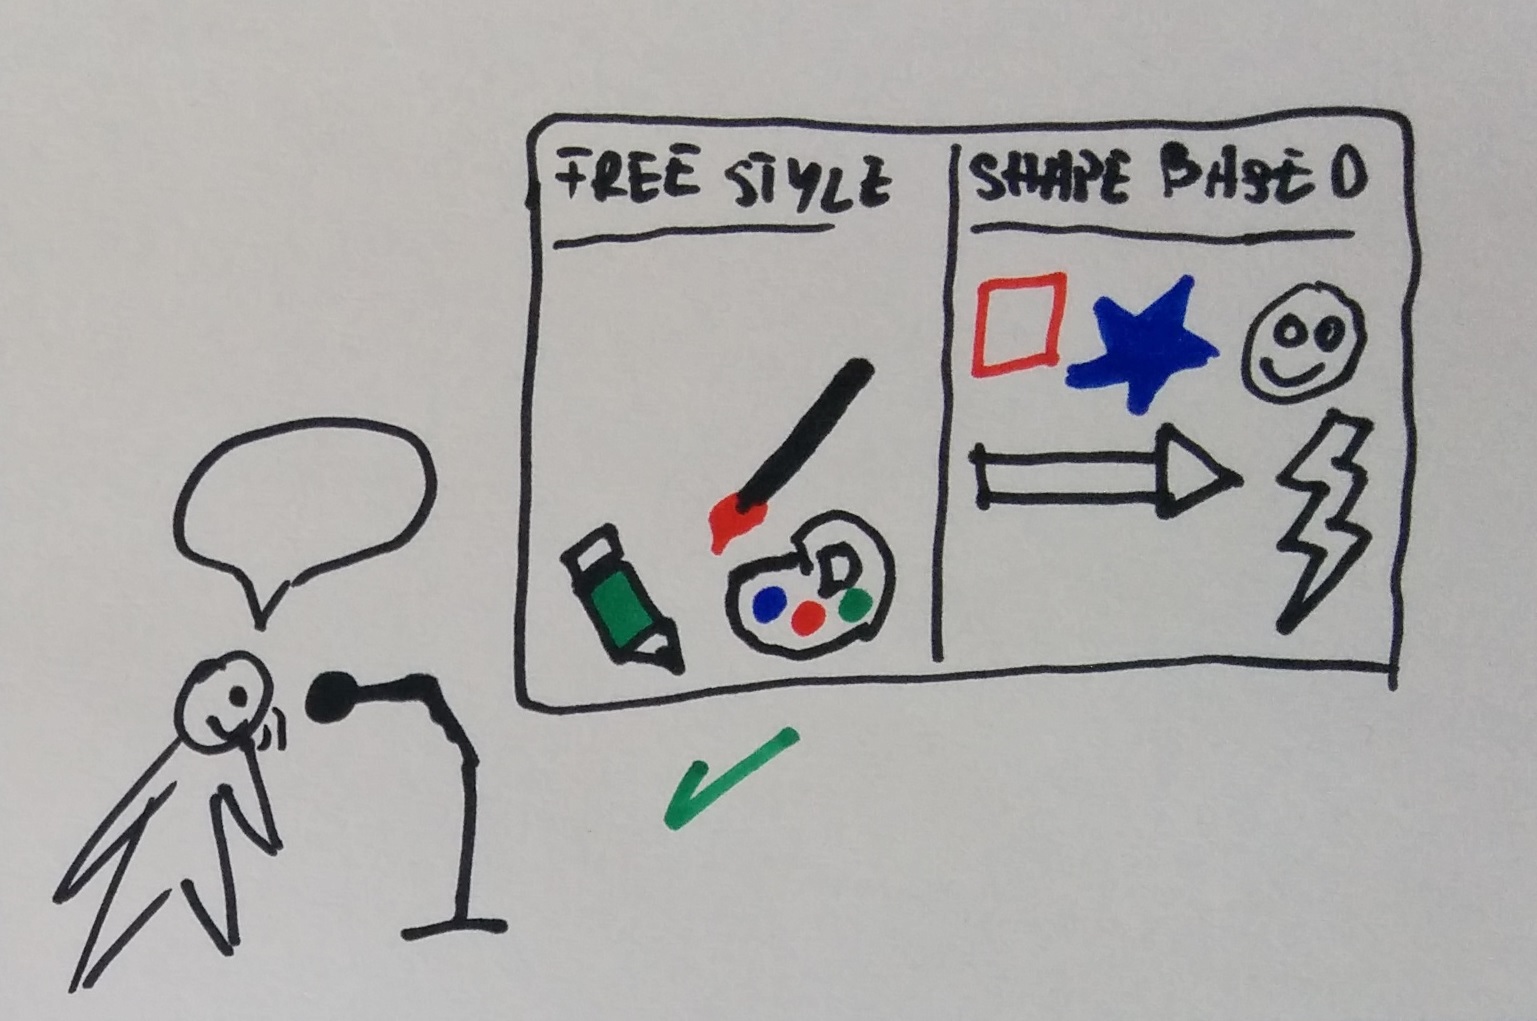 FREE STYLE
SHAPE BASED